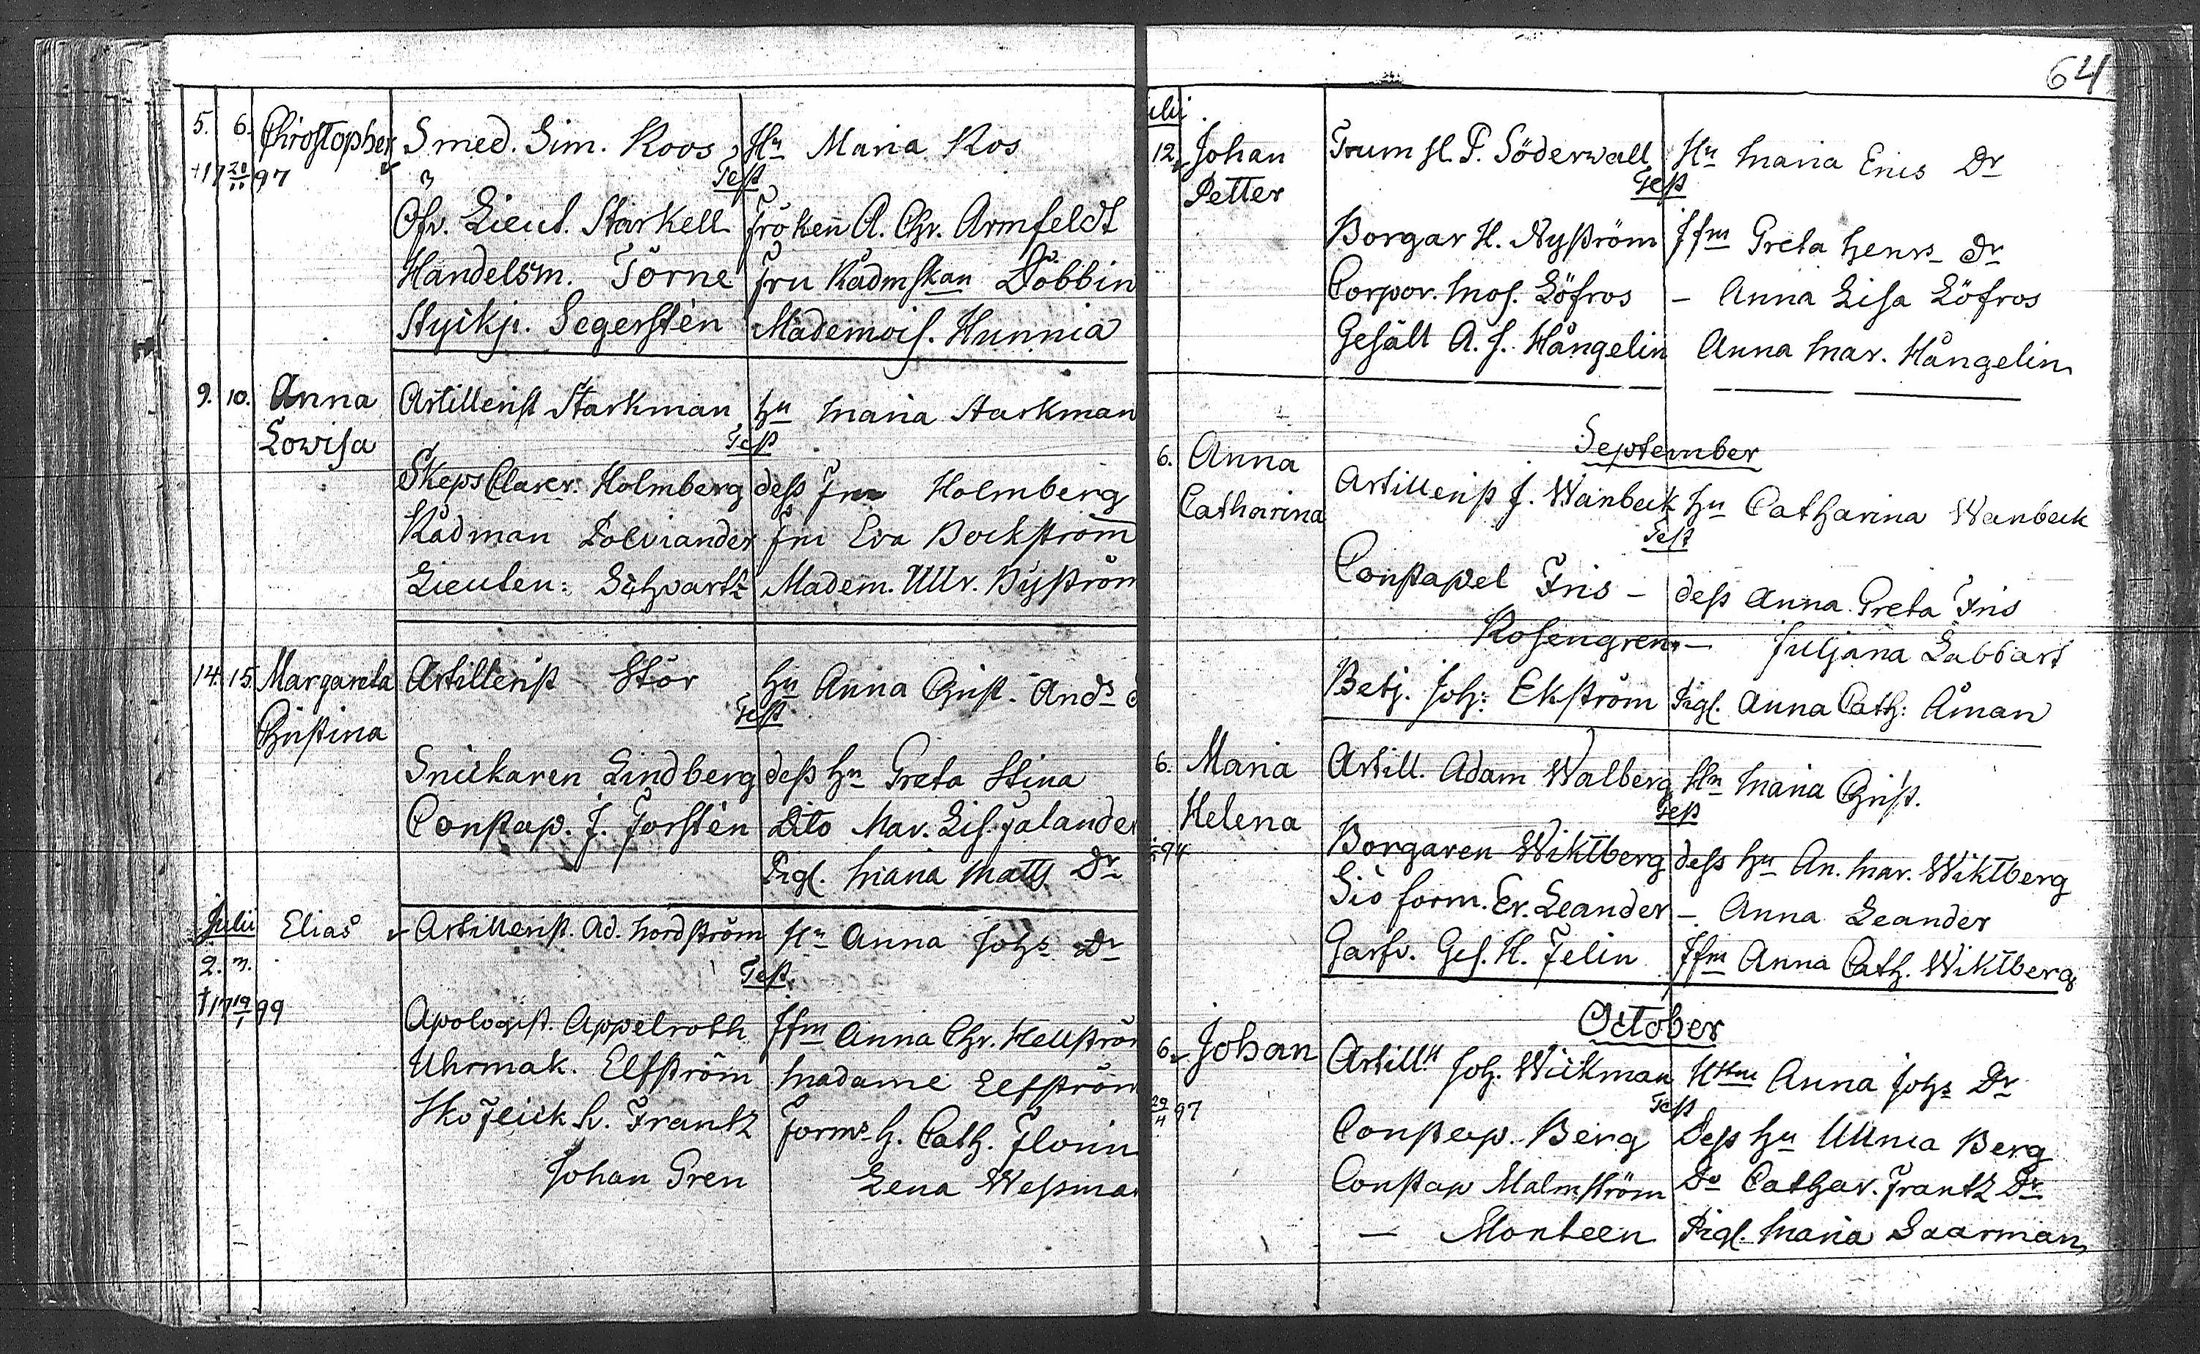 64
5. 6. Christopher Smed. Sim. Koos, Hu Maria Kos
+17 20/11 97 Test
Öfv. Lieut. Starkell Fröken A. Chr. Armfeldt
Handelsm. Törne Fru Rådmskan Dobbin
Styckj. Segerstén Mademois. Hunnia
9. 10. Anna Artillerist Starkman hu Maria Starkman
Lowisa Test
SkepsClarer. Holmberg dess fru Holmberg
Rådman Polviander fru Eva Bockström
Lieuten: Schvartz Madem. Ullr. Byström
14. 15. Margareta Artillerist Stör hu Anna Christ. Ands
Christina Test
Snickaren Lindberg dess hu Greta Stina
Constap. J. Forstén Dito Mar. Lis. Falander
Pigl. Maria Matts Dr
Julii Elias Artillerist. Ad. Nordström Hu Anna Johs Dr
2. 3. Test
†17 19/1 99
Apologist. Appelroth Jfru Anna Chr. Hellström
Uhrmak. Elfström Madame Elfström
Skoflick h. Frantz Forms h. Cath. Florin
Johan Gren Lena Wessman
ulii
12 Johan Trumsl. P. Söderwall Hu Maria Erics Dr
Petter Test
Borgar H. Nyström Jfru Greta Henrs Dr
Corpor. Mos. Löfros – Anna Lisa Löfros
Gesält A. J. Hångelin Anna Mar. Hångelin
September
6. Anna Artillerist J. Wanbeck hu Catharina Wanbeck
Catharina Test
Constapel Fris – dess Anna Greta Fris
Rosengren – Juljana Labbart
Betj. Joh: Ekström Pigl. Anna Cath: Åman
6. Maria Artill. Adam Walberg Hu Maria Christ.
Helena Test
94 Borgaren Wiktberg dess hu An. Mar. Wiktberg
Siö form. Er. Leander – Anna Leander
Garfv. Ges. H. Felin Jfru Anna Cath. Wiktberg
October
6 Johan Artill. Joh. Wickman Hu Anna Johs Dr
29/4 97 Test
Constap. Berg Dess hu Ullrica Berg
Constap Malmström Do Cathar. Frantz Dr
– Monteen Pigl. Maria Saarman